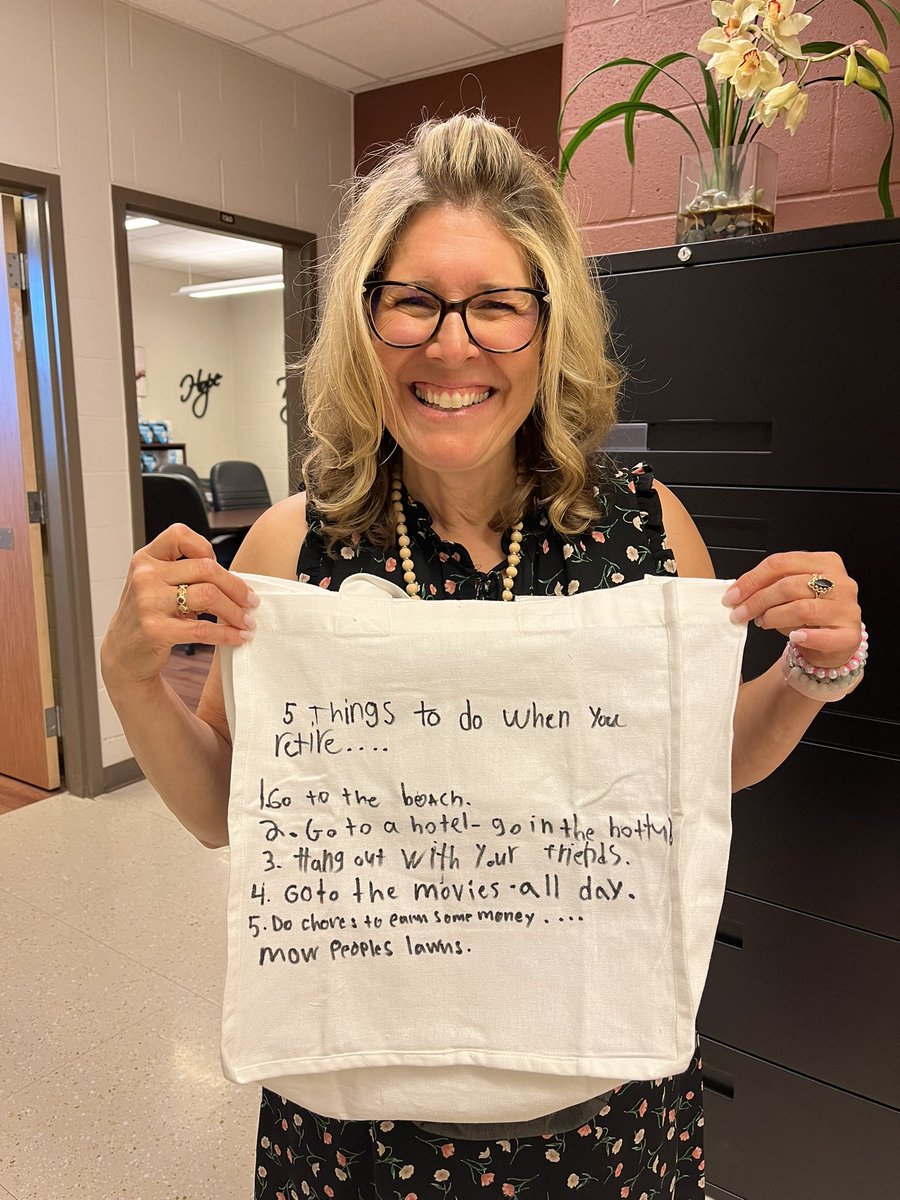 Hope
5 Things to do when You
retire....
1.Go to the beach.
2. Go to a hotel- go in the hottub
3. Hang out with Your friends.
4. Go to the movies - all day.
5. Do chores to earn some money ....
mow Peoples lawns.